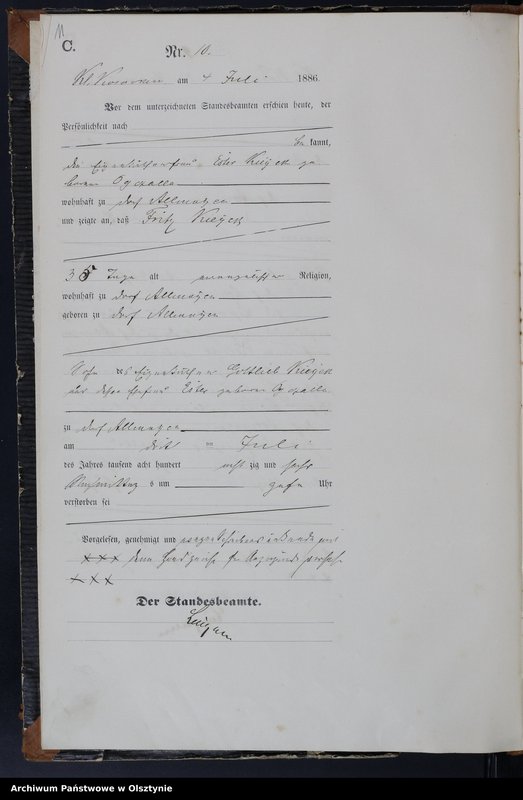 11
C.
Nr. 10.
am 4 Juli 1886.
Vor dem unterzeichneten Standesbeamten erschien heute, der
Persönlichkeit nach
be kannt,
die Eigenkäthnerfrau Ester Kiczek ge
borene Opczalla
wohnhaft zu dorf Allmoyen
und zeigte an, daß Fritz Kiczek
35 Tage alt evangelischer Religion,
wohnhaft zu dorf Allmoyen
geboren zu dorf Allmoyen
Sohn des Eigenkäthner Gottlieb Kiczek
und dessen Ehefrau Ester geborene Opczalla
zu dorf Allmoyen
am drit ten Juli
des Jahres tausend acht hundert acht zig und sechs
Nachmittag s um Uhr
verstorben sei
Vorgelesen, genehmigt und wegen
××× dem Handzeichen
×××
Der Standesbeamte.
Archiwum Państwowe w Olsztynie